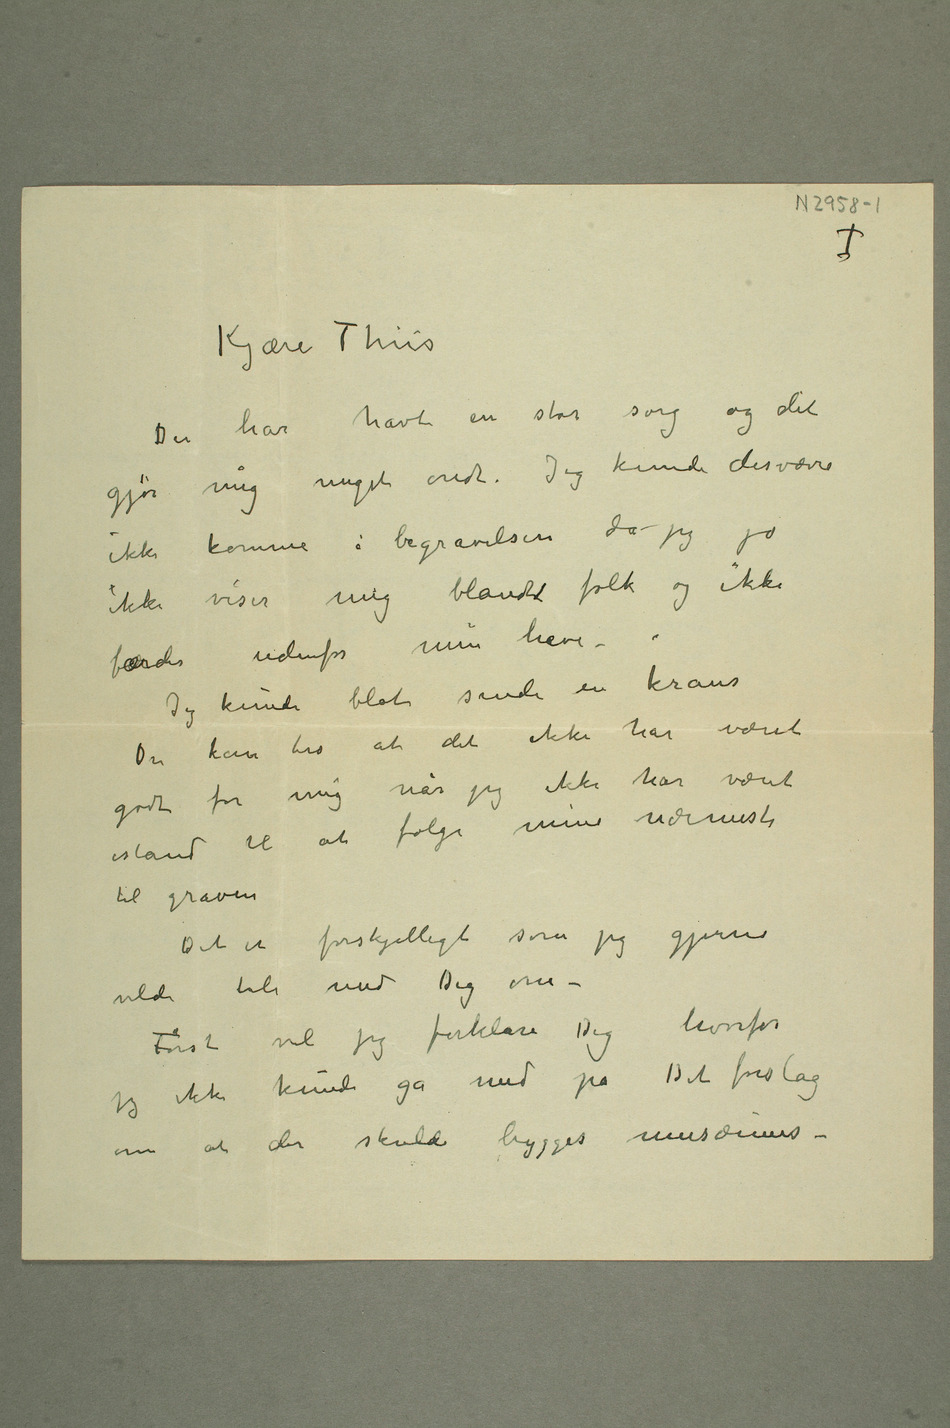 N 2958-1
I
Kjære Thiis
Du har havt en stor sorg og det
gjør mig meget ondt. Jeg kunde desværre
ikke komme i begravelsen da jeg jo
ikke viser mig blandt folk og ikke
færdes udenfor min have –
Jeg kunde blot sende en krans
Du kan tro at det ikke har været
godt for mig når jeg ikke har været
istand til at følge mine nærmeste
til graven
Det er forskjelligt som jeg gjerne
vilde tale med Dig om –
Først vil jeg forklare Dig hvorfor
jeg ikke kunde gå med på Dit forslag
om at der skulde bygges musæums –